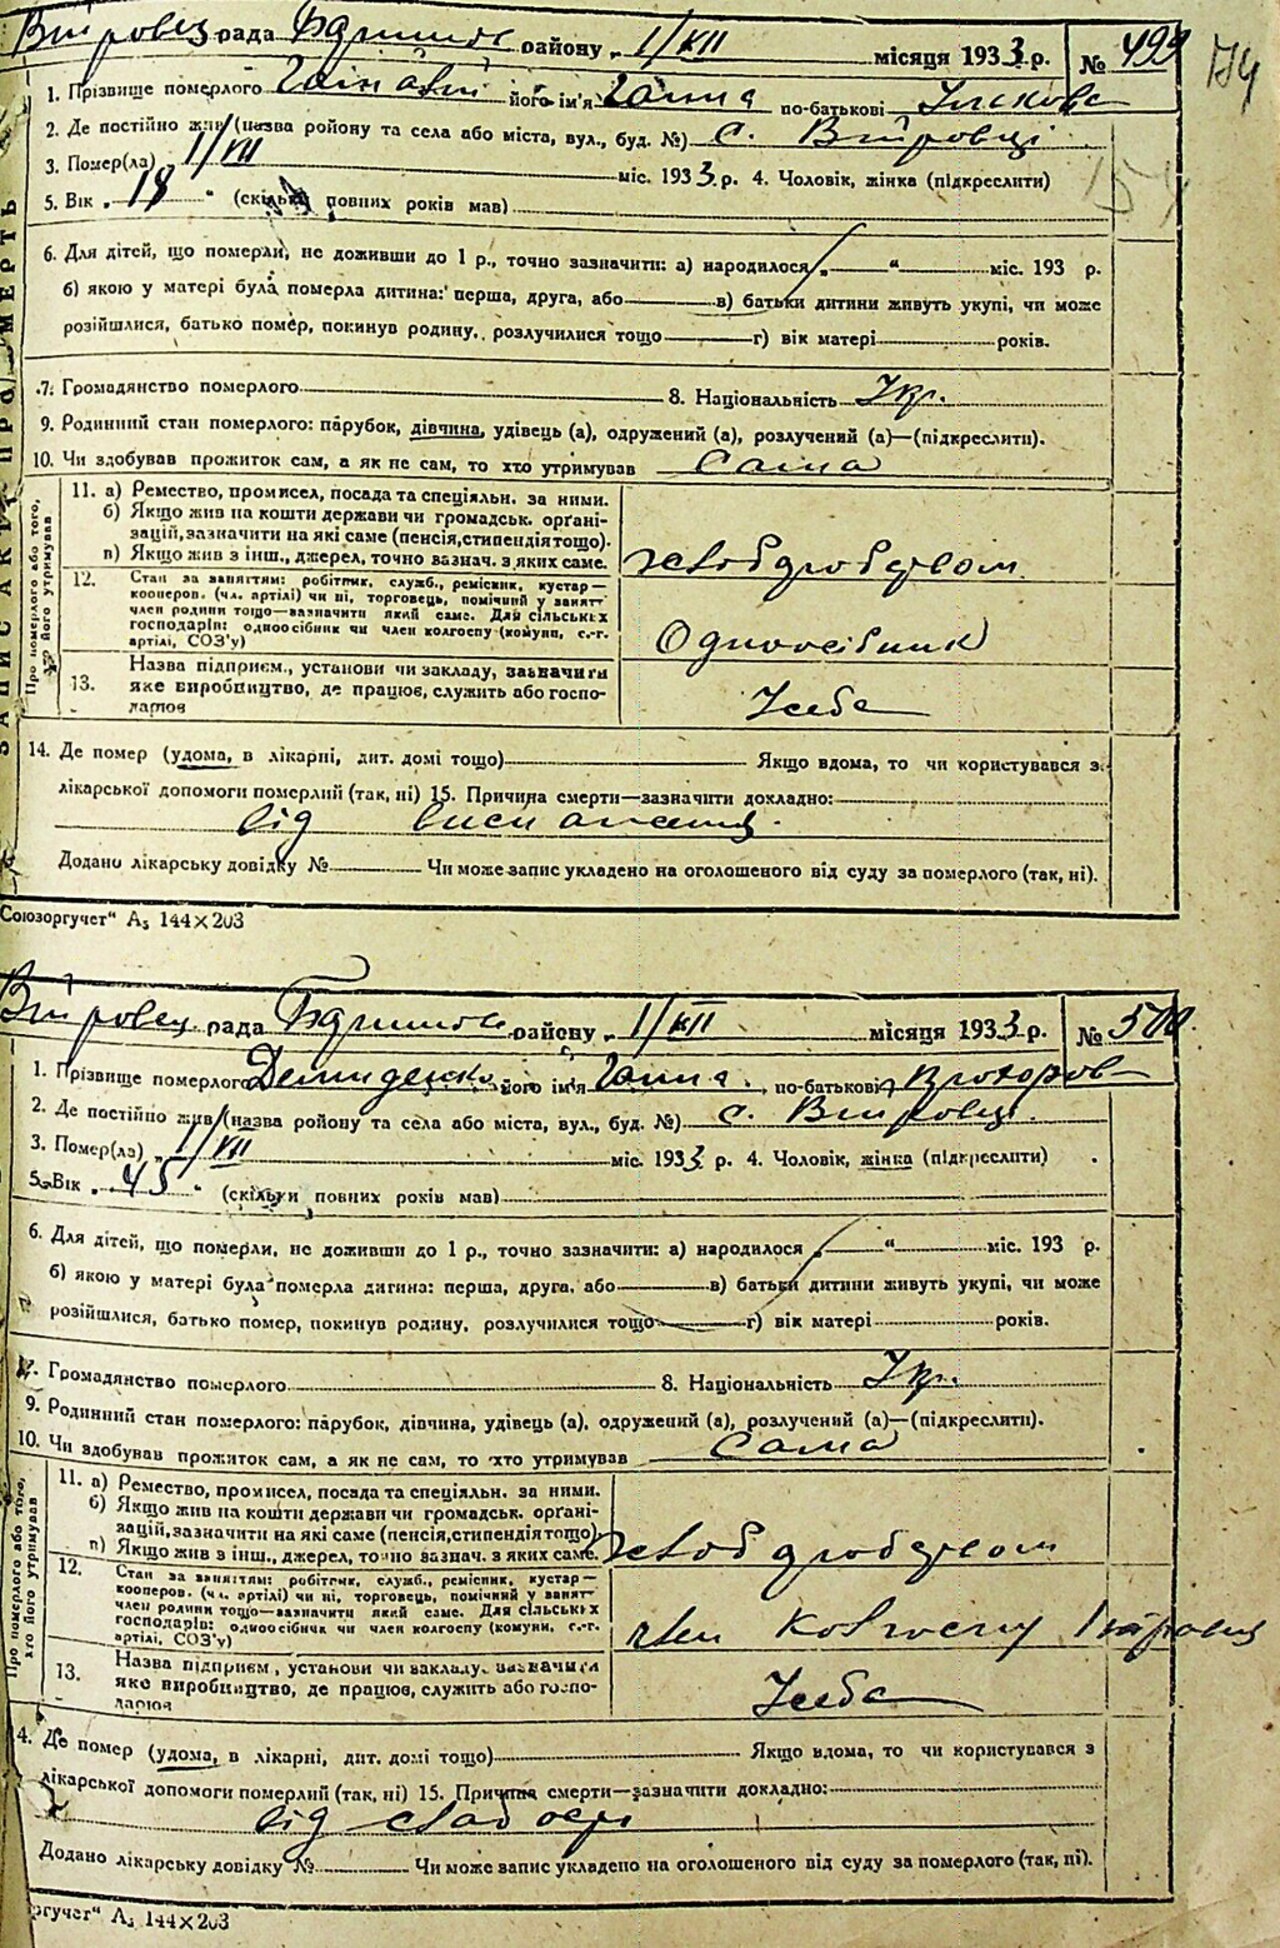 рада району „ 1/XII місяця 1933 р. № 499
174
1. Прізвище померлого його ім'я Ганна по-батькові
2. Де постійно жив (назва ройону та села або міста, вул., буд. №) с. Війровці
3. Помер(ла) „ 1/VII міс. 1933 р. 4. Чоловік, жінка (підкреслити)
154
5. Вік „ 18 " (скільки повних років мав)
6. Для дітей, що померли, не доживши до 1 р., точно зазначити: а) народилося „ “ міс. 193 р.
б) якою у матері була померла дитина: перша, друга, або в) батьки дитини живуть укупі, чи може
розійшлися, батько помер, покинув родину, розлучилися тощо г) вік матері років.
7. Громадянство померлого 8. Національність Укр.
9. Родинний стан померлого: парубок, дівчина, удівець (а), одружений (а), розлучений (а)—(підкреслити).
10. Чи здобував прожиток сам, а як не сам, то хто утримував Сама
ЗАПИС АКТУ ПРО СМЕРТЬ
Про померлого або того, хто його утримував
11. а) Ремество, промисел, посада та спеціяльн. за ними.
б) Якщо жив на кошти держави чи громадськ. органі-
зацій, зазначити на які саме (пенсія, стипендія тощо).
в) Якщо жив з інш., джерел, точно вазнач. з яких саме. хлібробством
12. Стан за заняттям: робітник, служб., ремісник, кустар—
кооперов. (чл. артілі) чи ні, торговець, помічний у занятт
член родини тощо—зазначити який саме. Для сільських
господарів: одноосібник чи член колгоспу (комуни, с.-г. Одноосібник
артілі, СОЗ'у)
13. Назва підприєм., установи чи закладу, зазначити
яке виробництво, де працює, служить або госпо- У себе
дарюв
14. Де помер (удома, в лікарні, дит. домі тощо) Якщо вдома, то чи користувався з
лікарської допомоги померлий (так, ні) 15. Причина смерти—зазначити докладно:
від
Додано лікарську довідку № Чи може запис укладено на оголошеного від суду за померлого (так, ні).
Союзоргучет" А₅ 144×203
рада району „ 1/XII місяця 1933 р. № 500
1. Прізвище померлого Демиденко його ім'я Ганна по-батькові Прохоров
2. Де постійно жив (назва ройону та села або міста, вул., буд. №) с. Війровці
3. Помер(ла) „ 1/VII міс. 1933 р. 4. Чоловік, жінка (підкреслити)
5. Вік „ 45 " (скільки повних років мав)
6. Для дітей, що померли, не доживши до 1 р., точно зазначити: а) народилося „ “ міс. 193 р.
б) якою у матері була померла дитина: перша, друга, або в) батьки дитини живуть укупі, чи може
розійшлися, батько помер, покинув родину, розлучилися тощо г) вік матері років.
7. Громадянство померлого 8. Національність Укр.
9. Родинний стан померлого: парубок, дівчина, удівець (а), одружений (а), розлучений (а)—(підкреслити).
10. Чи здобував прожиток сам, а як не сам, то хто утримував Сама
Про померлого або того, хто його утримував
11. а) Ремество, промисел, посада та спеціяльн. за ними.
б) Якщо жив на кошти держави чи громадськ. органі-
зацій, зазначити на які саме (пенсія, стипендія тощо).
в) Якщо жив з інш., джерел, точно вазнач. з яких саме. хлібробством
12. Стан за заняттям: робітник, служб., ремісник, кустар—
кооперов. (чл. артілі) чи ні, торговець, помічний у занятт
член родини тощо—зазначити який саме. Для сільських
господарів: одноосібник чи член колгоспу (комуни, с.-г. член колгоспу
артілі, СОЗ'у)
13. Назва підприєм., установи чи закладу, зазначити
яке виробництво, де працює, служить або госпо- У себе
дарюв
14. Де помер (удома, в лікарні, дит. домі тощо) Якщо вдома, то чи користувався з
лікарської допомоги померлий (так, ні) 15. Причина смерти—зазначити докладно:
від слабості
Додано лікарську довідку № Чи може запис укладено на оголошеного від суду за померлого (так, ні).
оргучет" А₅ 144×203